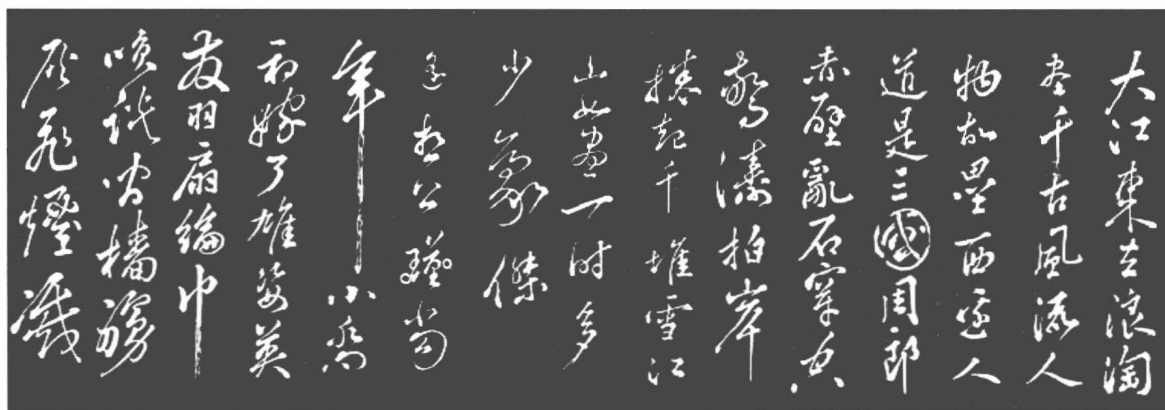 大江東去浪淘
盡千古風流人
物故壘西邊人
道是三國周郎
赤壁亂石穿空
驚濤拍岸
捲起千堆雪江
山如畫一时多
少豪傑
遙想公瑾當
年小喬
初嫁了雄姿英
發羽扇綸巾
咲談間檣艣
灰飛煙滅